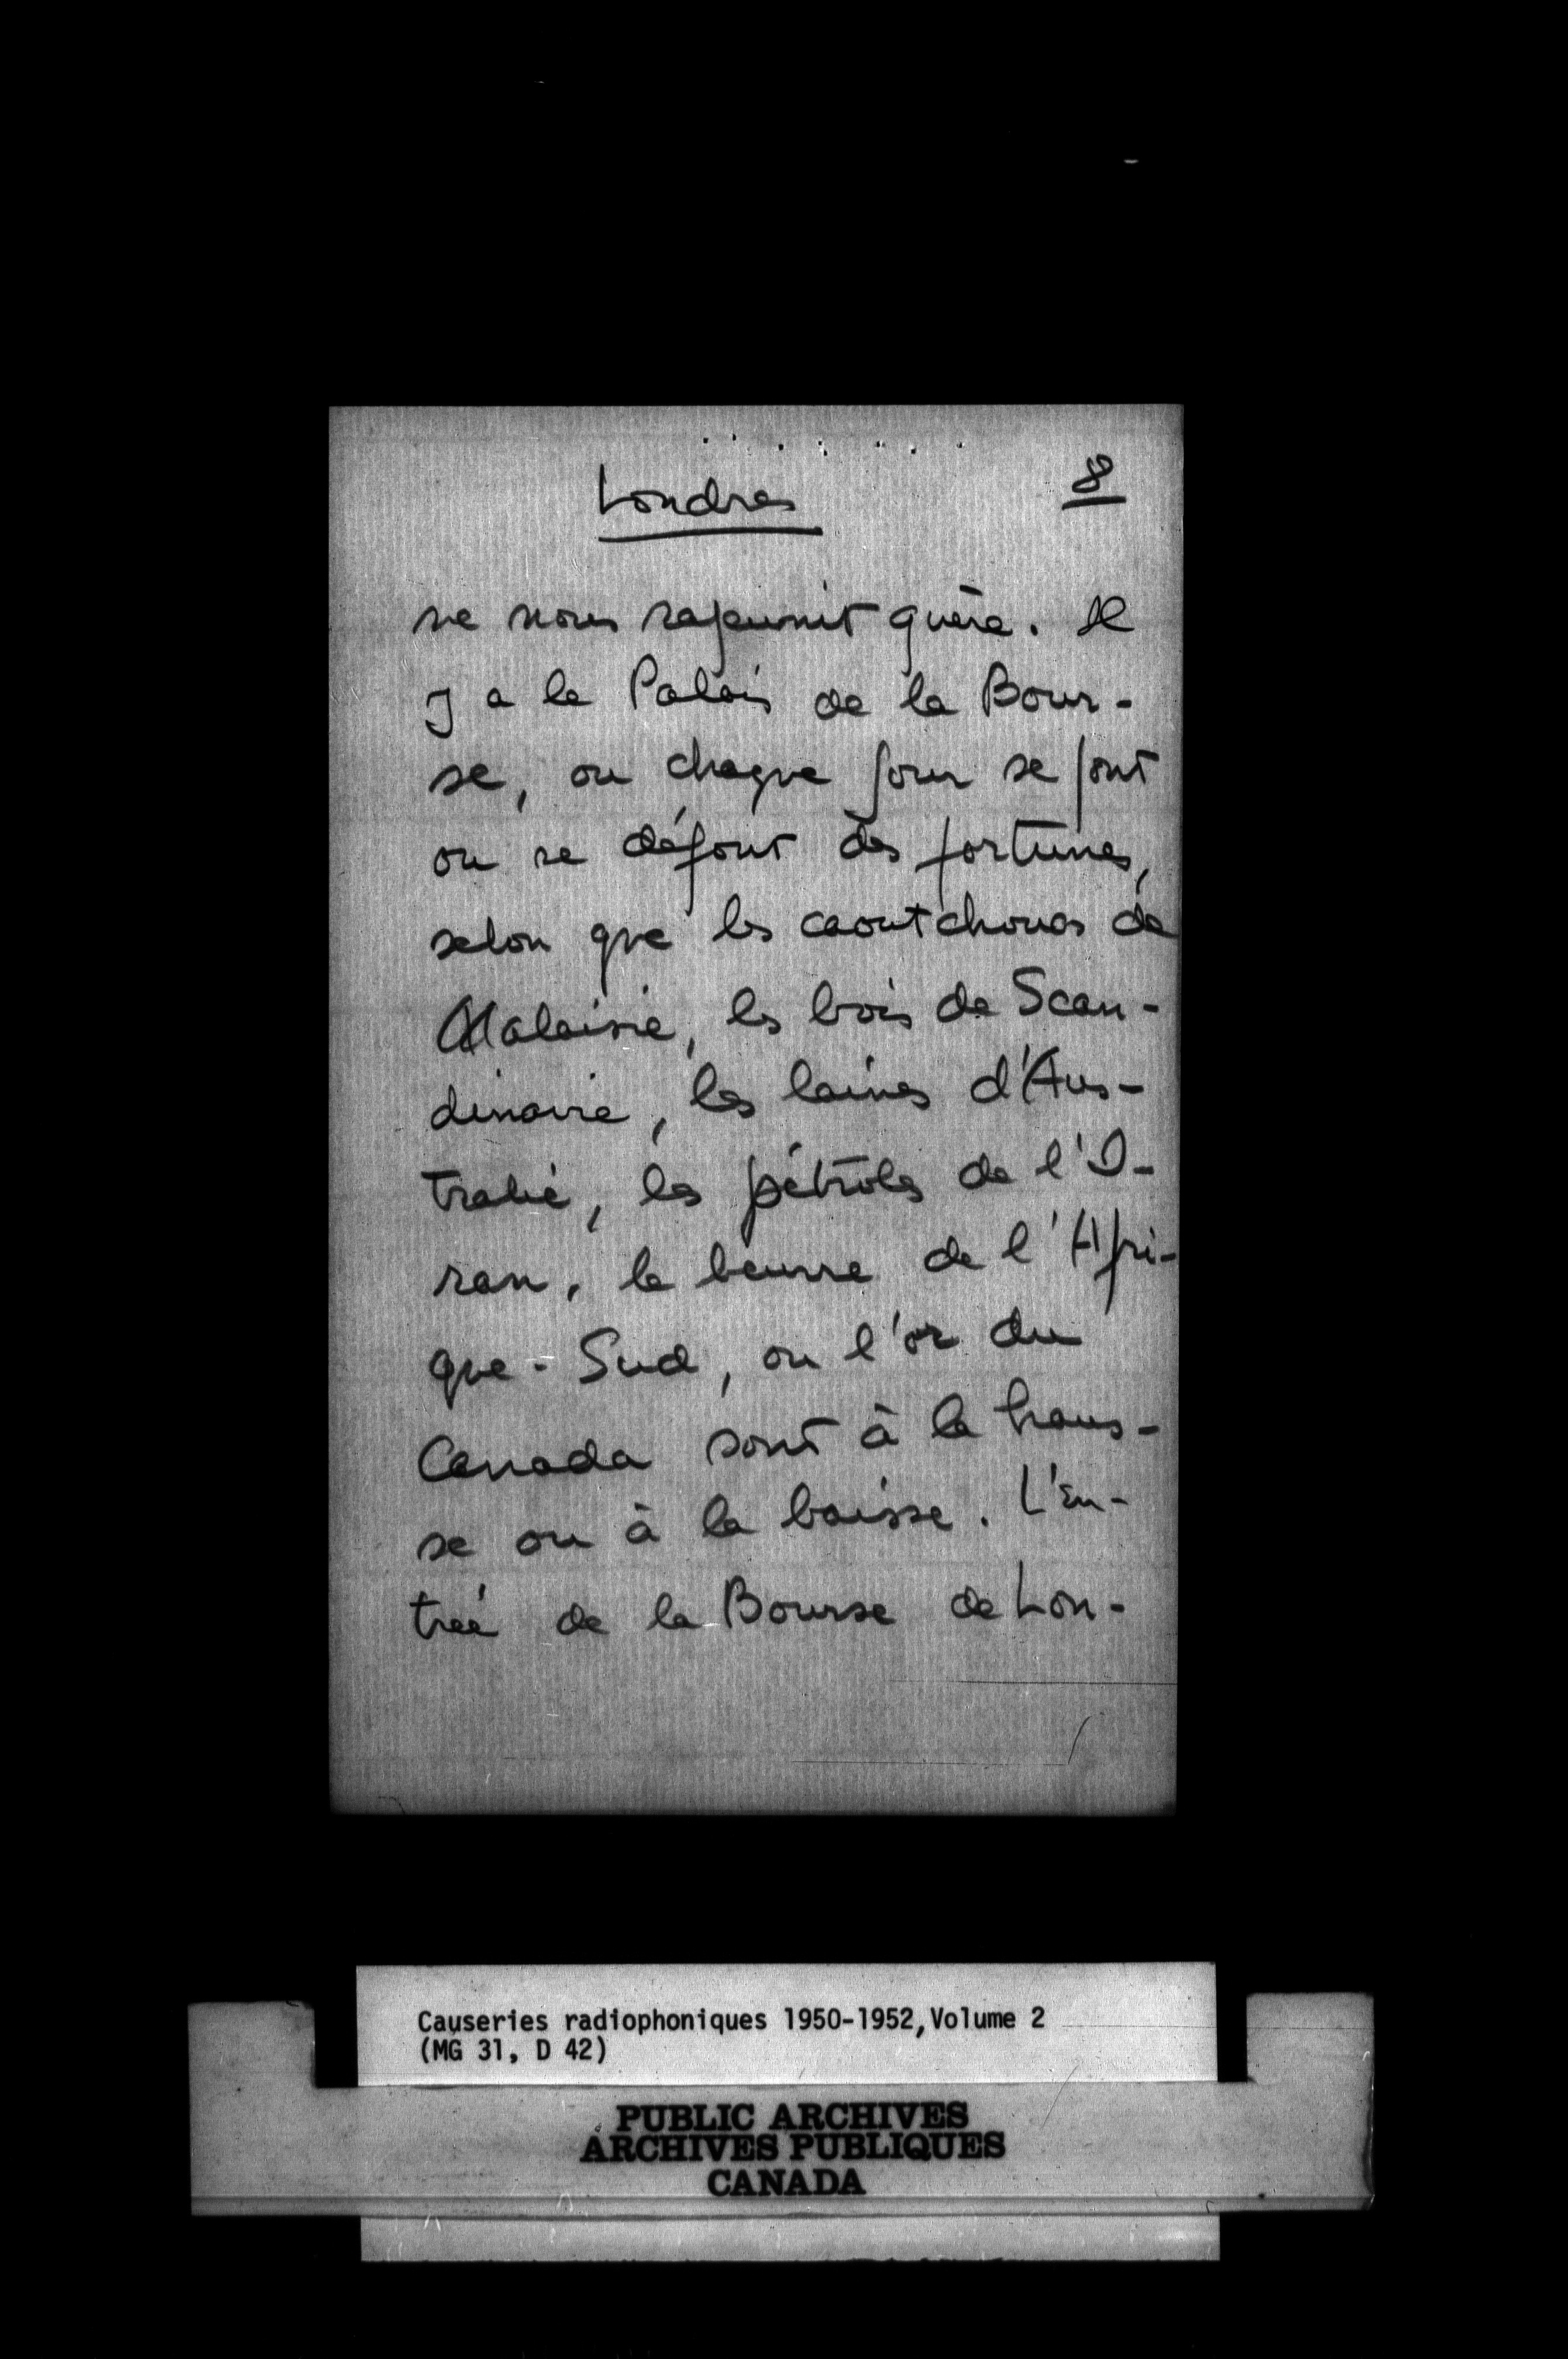 Londres 8
ne nous rajeunit guère. Il
y a le Palais de la Bour-
se, ou chaque jour se font
ou se défont des fortunes,
selon que les caoutchoucs de
Malaisie, les bois de Scan-
dinavie, les laines d'Aus-
tralie, les pétroles de l'I-
ran, le beurre de l'Afri-
que-Sud, ou l'or du
Canada sont à la haus-
se ou à la baisse. L'en-
trée de la Bourse de Lon-
Causeries radiophoniques 1950-1952, Volume 2
(MG 31, D 42)
PUBLIC ARCHIVES
ARCHIVES PUBLIQUES
CANADA